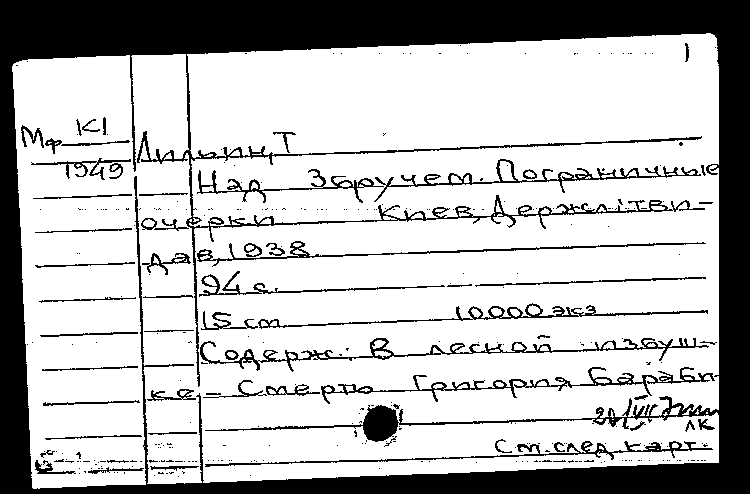 1
Мф К1
1949
Лильин, Т
Над Збручем. Пограничные
очерки Киев, Держлітви-
дав, 1938.
94 с.
15 см 10.000 экз
Содерж: В лесной избуш-
ке – Смерть Григория Бараби-
ЛК
См. след. карт.